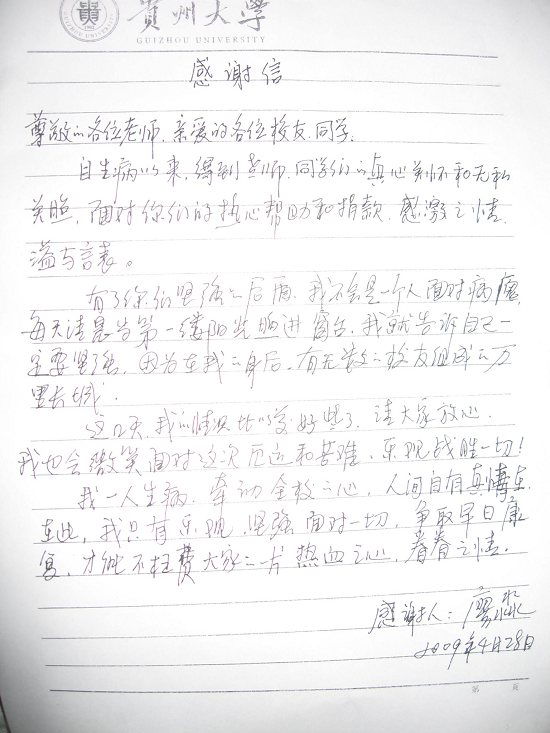 貴州大學
GUIZHOU UNIVERSITY
感谢信
尊敬的各位老师、亲爱的各位校友、同学:
自生病以来,得到老师、同学们的真心关怀和无私
关照,面对你们的热心帮助和捐款,感激之情,
溢与言表。
有了你们坚强的后盾,我不会是一个人面对病魔,
每天清晨当第一缕阳光照进窗台,我就告诉自己一
定要坚强,因为在我的身后,有无数的校友组成的万
里长城。
这几天,我的情况比以前好些了,请大家放心。
我也会微笑面对这次厄运和苦难,乐观战胜一切!
我一人生病,牵动全校之心,人间自有真情在
在此,我只有乐观、坚强面对一切,争取早日康
复,才能不枉费大家的一片热血之心,眷眷之情。
感谢人:廖淼
2009年4月28日
第 页